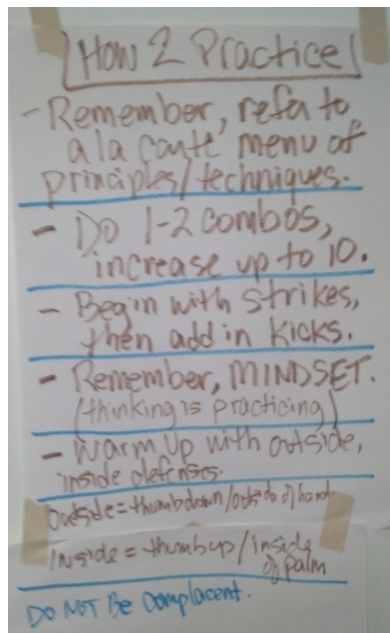 How 2 Practice
- Remember, refer to
a la carte' menu of
principles/techniques.
- Do 1-2 combos,
increase up to 10.
- Begin with strikes,
then add in kicks.
- Remember, MINDSET.
(thinking is practicing)
- Warm up with outside,
inside defenses.
Outside = thumb down/outside of hand
Inside = thumb up/inside
of palm
DO NOT Be Complacent.